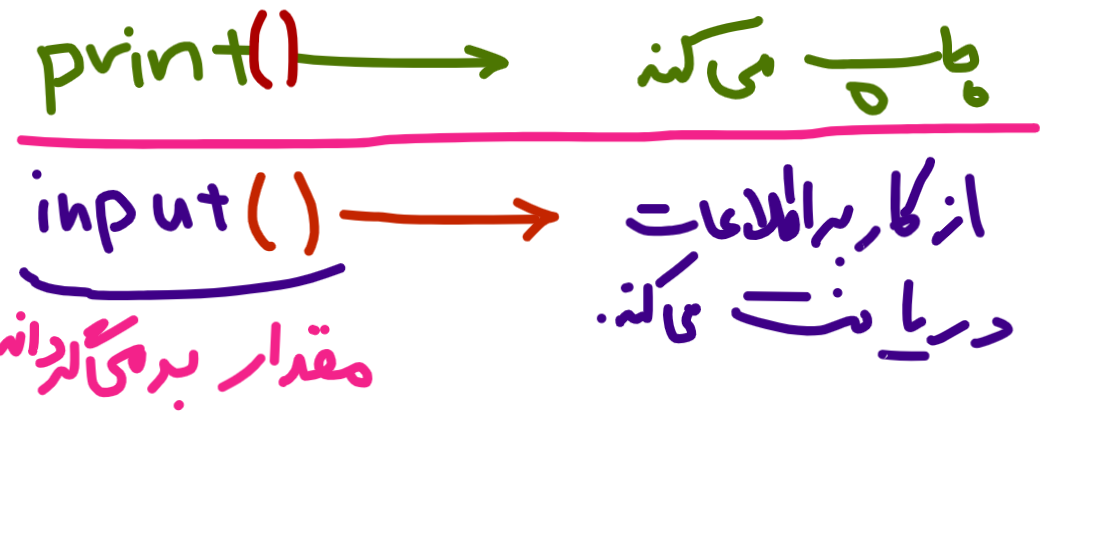 print() → چاپ می‌کند
input() → از کاربر اطلاعات
دریافت می‌کند.
مقدار بر می‌گرداند